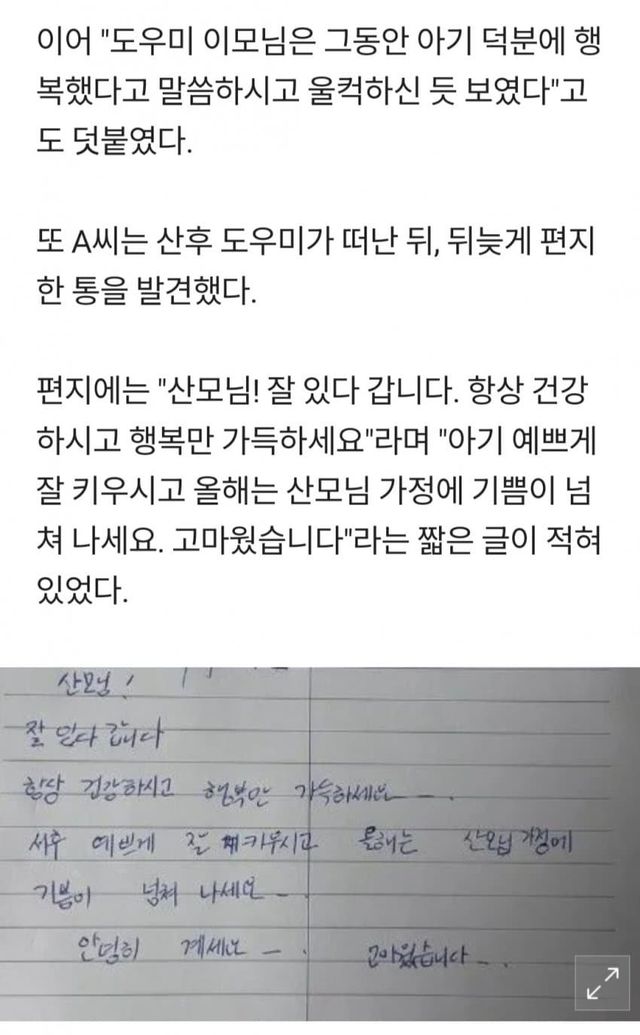 이어 "도우미 이모님은 그동안 아기 덕분에 행
복했다고 말씀하시고 울컥하신 듯 보였다"고
도 덧붙였다.
또 A씨는 산후 도우미가 떠난 뒤, 뒤늦게 편지
한 통을 발견했다.
편지에는 "산모님! 잘 있다 갑니다. 항상 건강
하시고 행복만 가득하세요"라며 "아기 예쁘게
잘 키우시고 올해는 산모님 가정에 기쁨이 넘
쳐 나세요. 고마웠습니다"라는 짧은 글이 적혀
있었다.
산모님!
잘 있다 갑니다
항상 건강하시고 행복만 가득하세요 ─.
예쁘게 잘 키우시고 올해는 산모님 가정에
기쁨이 넘쳐 나세요 ─.
안녕히 계세요 ─. 고마웠습니다 ─.